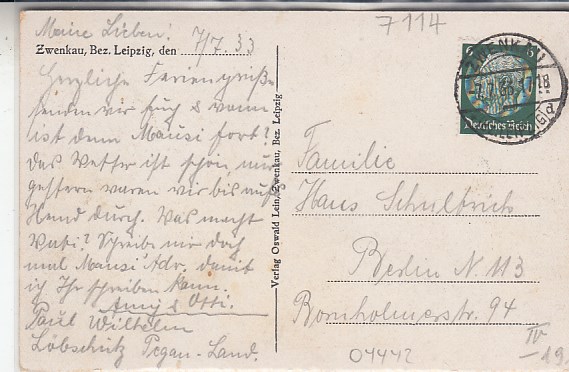 7114
Meine Lieben!
Zwenkau, Bez. Leipzig, den 7/7.33
Herzliche Feriengrüße
senden wir Euch & wann
ist denn Mausi fort?
Das Wetter ist schön, nur
gestern waren wir bis aufs
Hemd durch. Was macht
Vati? Schreibe mir doch
mal Mausi's Adr. damit
ich Ihr schreiben kann.
Anny & Otti.
Paul Wilhelm
Löbschütz Pegau-Land.
Verlag Oswald Lein, Zwenkau, Bez. Leipzig
6 6
Deutsches Reich
ZWENKAU
Familie
Hans Schulbrich
Berlin N. 113
Bornholmerstr. 94
04442
IV
-19.